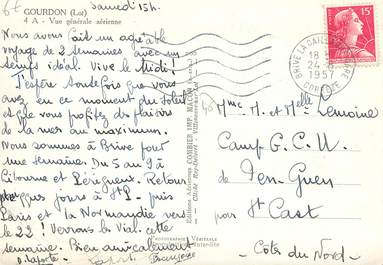 Samedi 15h.
GOURDON (Lot)
4 A - Vue générale aérienne
Nous avons fait un agréable
voyage de 2 semaines avec un
temps idéal. Vive le Midi !
J'espère toutefois que vous
avez en ce moment du soleil
et que vous profitez des plaisirs
de la mer au maximum.
Nous sommes à Brive pour
une semaine. Du 5 au 9 à
Libourne et Périgueux. Retour
quelques jours à St P. - puis
Paris et la Normandie vers
le 22 ! Verrons les Vial. cette
semaine. Bien amicalement
Françoise
Editions Aériennes COMBIER IMP. MACON
PHOTOGRAPHIE VÉRITABLE
BRIVE LA GAILLARDE
18
24-8
1957
CORREZE
15F
Mme M. et Melle Lemoine
Camp G.C.U.
de Pen-Guen
par St Cast
Côtes du Nord -